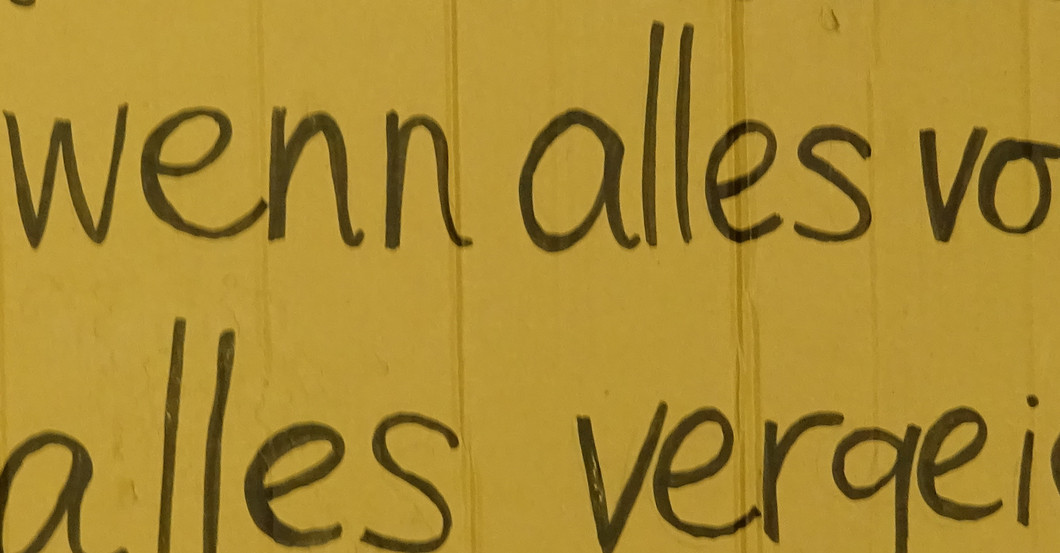 wenn alles vo
alles vergei